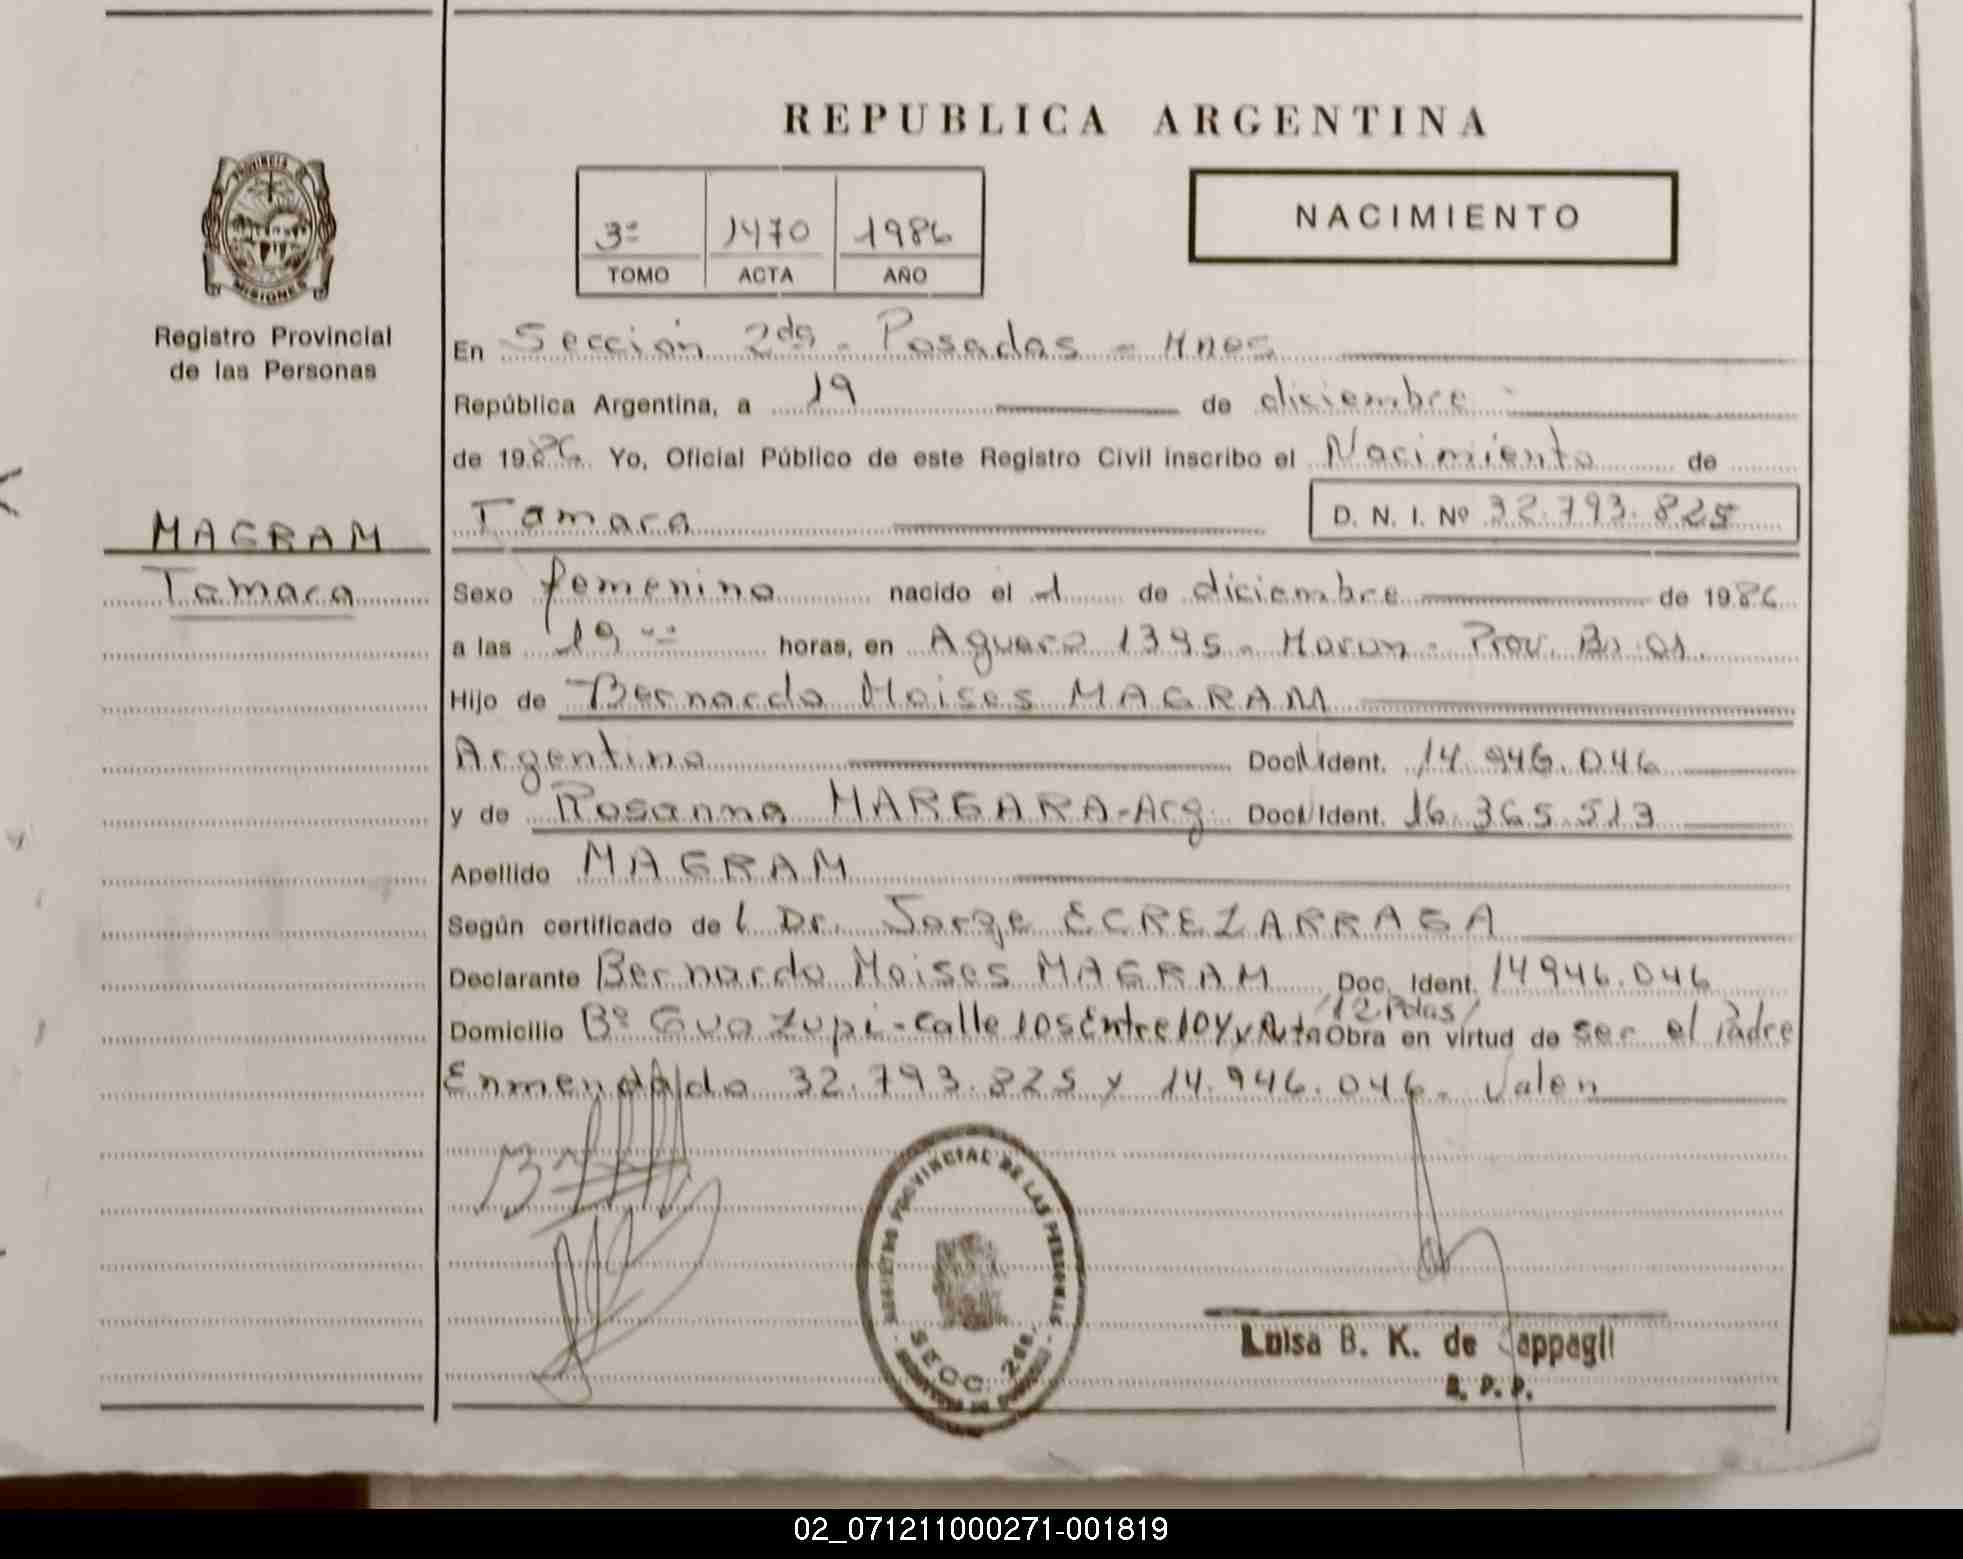 REPUBLICA ARGENTINA
PROVINCIA DE MISIONES
Registro Provincial
de las Personas
3º 1470 1986
TOMO ACTA AÑO
NACIMIENTO
En Sección 2da - Posadas - Mnes
República Argentina, a 19 de diciembre
de 1986. Yo, Oficial Público de este Registro Civil inscribo el Nacimiento de
MAGRAM
Tamara
Tamara D. N. I. Nº 32.793.825
Sexo femenino nacido el 1 de diciembre de 1986
a las 19 horas, en Aguero 1395 - Moron - Prov. Bs. As.
Hijo de Bernardo Moises MAGRAM
Argentino Doc. Ident. 14.946.046
y de Rosanna MARGARA - Arg. Doc. Ident. 16.365.513
Apellido MAGRAM
Según certificado de l Dr. Jorge ECREZARRAGA
Declarante Bernardo Moises MAGRAM Doc. Ident. 14946.046
Domicilio Bº Guazupi - Calle 105 Entre 104 y Ruta 12 Pdas/ Obra en virtud de ser el Padre
Enmendado 32.793.825 y 14.946.046 - Valen
REGISTRO PROVINCIAL DE LAS PERSONAS
SECC. 2da.
Luisa B. K. de Sappagli
02_071211000271-001819